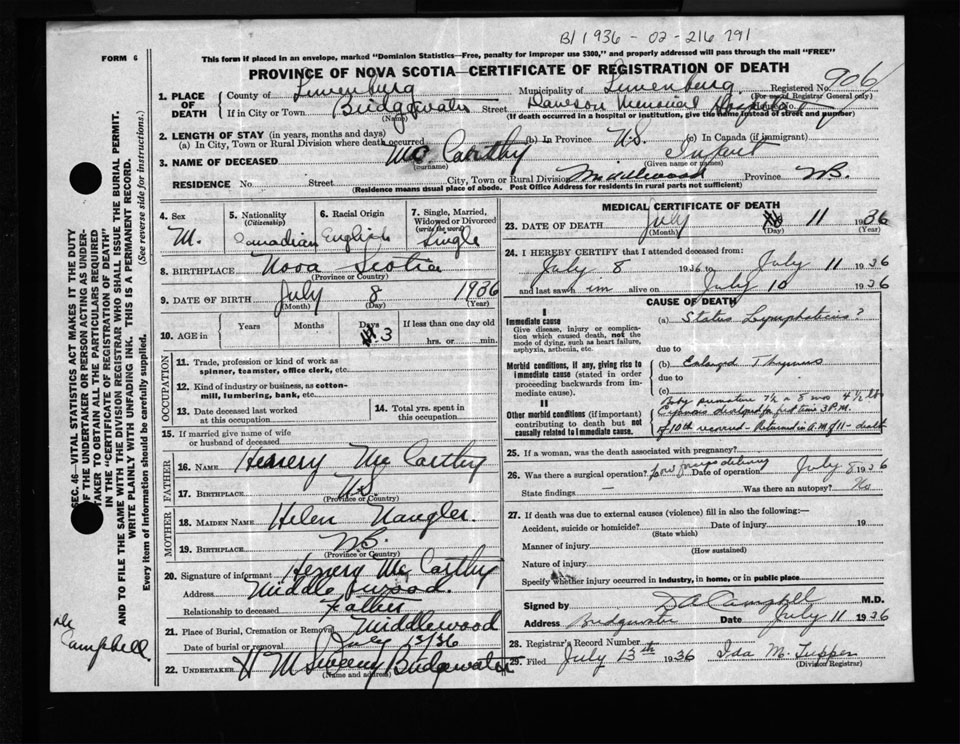 B/1936 - 02-216791
FORM 6
This form if placed in an envelope, marked "Dominion Statistics—Free, penalty for improper use $300," and properly addressed will pass through the mail "FREE"
PROVINCE OF NOVA SCOTIA—CERTIFICATE OF REGISTRATION OF DEATH
1. PLACE OF DEATH
County of Lunenburg Municipality of Lunenburg Registered No. 906
(For use of Registrar General only)
If in City or Town Bridgewater Street Dawson Memorial Hospital House No.
(Name) (If death occurred in a hospital or institution, give the name instead of street and number)
2. LENGTH OF STAY (in years, months and days)
(a) In City, Town or Rural Division where death occurred (b) In Province N.S. (c) In Canada (if immigrant)
3. NAME OF DECEASED Mc Carthy Infant
(Surname) (Given name or names)
RESIDENCE No. Street City, Town or Rural Division Middlewood Province
(Residence means usual place of abode. Post Office Address for residents in rural parts not sufficient)
4. Sex M.
5. Nationality (Citizenship) Canadian
6. Racial Origin English
7. Single, Married, Widowed or Divorced (write the word) Single
8. BIRTHPLACE Nova Scotia
(Province or Country)
9. DATE OF BIRTH July 8 1936
(Month) (Day) (Year)
10. AGE in Years Months Days 3 If less than one day old hrs. or min.
OCCUPATION
11. Trade, profession or kind of work as spinner, teamster, office clerk, etc.
12. Kind of industry or business, as cotton-mill, lumbering, bank, etc.
13. Date deceased last worked at this occupation
14. Total yrs. spent in this occupation
15. If married give name of wife or husband of deceased
FATHER
16. NAME Henery Mc Carthy
17. BIRTHPLACE N.S.
(Province or Country)
MOTHER
18. MAIDEN NAME Helen Naugler.
19. BIRTHPLACE
(Province or Country)
20. Signature of informant Henery Mc Carthy
Address Middlewood.
Relationship to deceased Father
21. Place of Burial, Cremation or Removal Middlewood
Date of burial or removal July 13/36
22. UNDERTAKER H M Sweeny Bridgewater
(Name and address)
MEDICAL CERTIFICATE OF DEATH
23. DATE OF DEATH July 11 1936
(Month) (Day) (Year)
24. I HEREBY CERTIFY that I attended deceased from
July 8 1936 to July 11 1936
and last saw him alive on July 10 1936
CAUSE OF DEATH
I
Immediate cause (a) Status Lymphaticus?
Give disease, injury or complication which caused death, not the mode of dying, such as heart failure, asphyxia, asthenia, etc.
due to
Morbid conditions, if any, giving rise to immediate cause (stated in order proceeding backwards from immediate cause). (b) Enlarged Thymus
due to
(c)
II
Other morbid conditions (if important) contributing to death but not causally related to immediate cause.
Baby premature 7½ a 8 mos 4½ lbs
Cyanosis developed for first time 3 P.M.
of 10th recovered - Returned in A.M. of 11 - death
25. If a woman, was the death associated with pregnancy?
26. Was there a surgical operation? Low forceps delivery Date of operation July 8 1936
State findings — Was there an autopsy? No
27. If death was due to external causes (violence) fill in also the following:—
Accident, suicide or homicide? Date of injury 19
(State which)
Manner of injury
(How sustained)
Nature of injury
Specify whether injury occurred in industry, in home, or in public place
Signed by D A Campbell M.D.
Address Bridgewater Date July 11 1936
28. Registrar's Record Number
29. Filed July 13th 1936 Ida M. Tupper
(Division Registrar)
SEC. 46—VITAL STATISTICS ACT MAKES IT THE DUTY
OF THE UNDERTAKER OR PERSON ACTING AS UNDERTAKER TO OBTAIN ALL THE PARTICULARS REQUIRED
IN THE "CERTIFICATE OF REGISTRATION OF DEATH"
AND TO FILE THE SAME WITH THE DIVISION REGISTRAR WHO SHALL ISSUE THE BURIAL PERMIT.
WRITE PLAINLY WITH UNFADING INK. THIS IS A PERMANENT RECORD.
Every item of Information should be carefully supplied.
(See reverse side for instructions.)
Campbell.